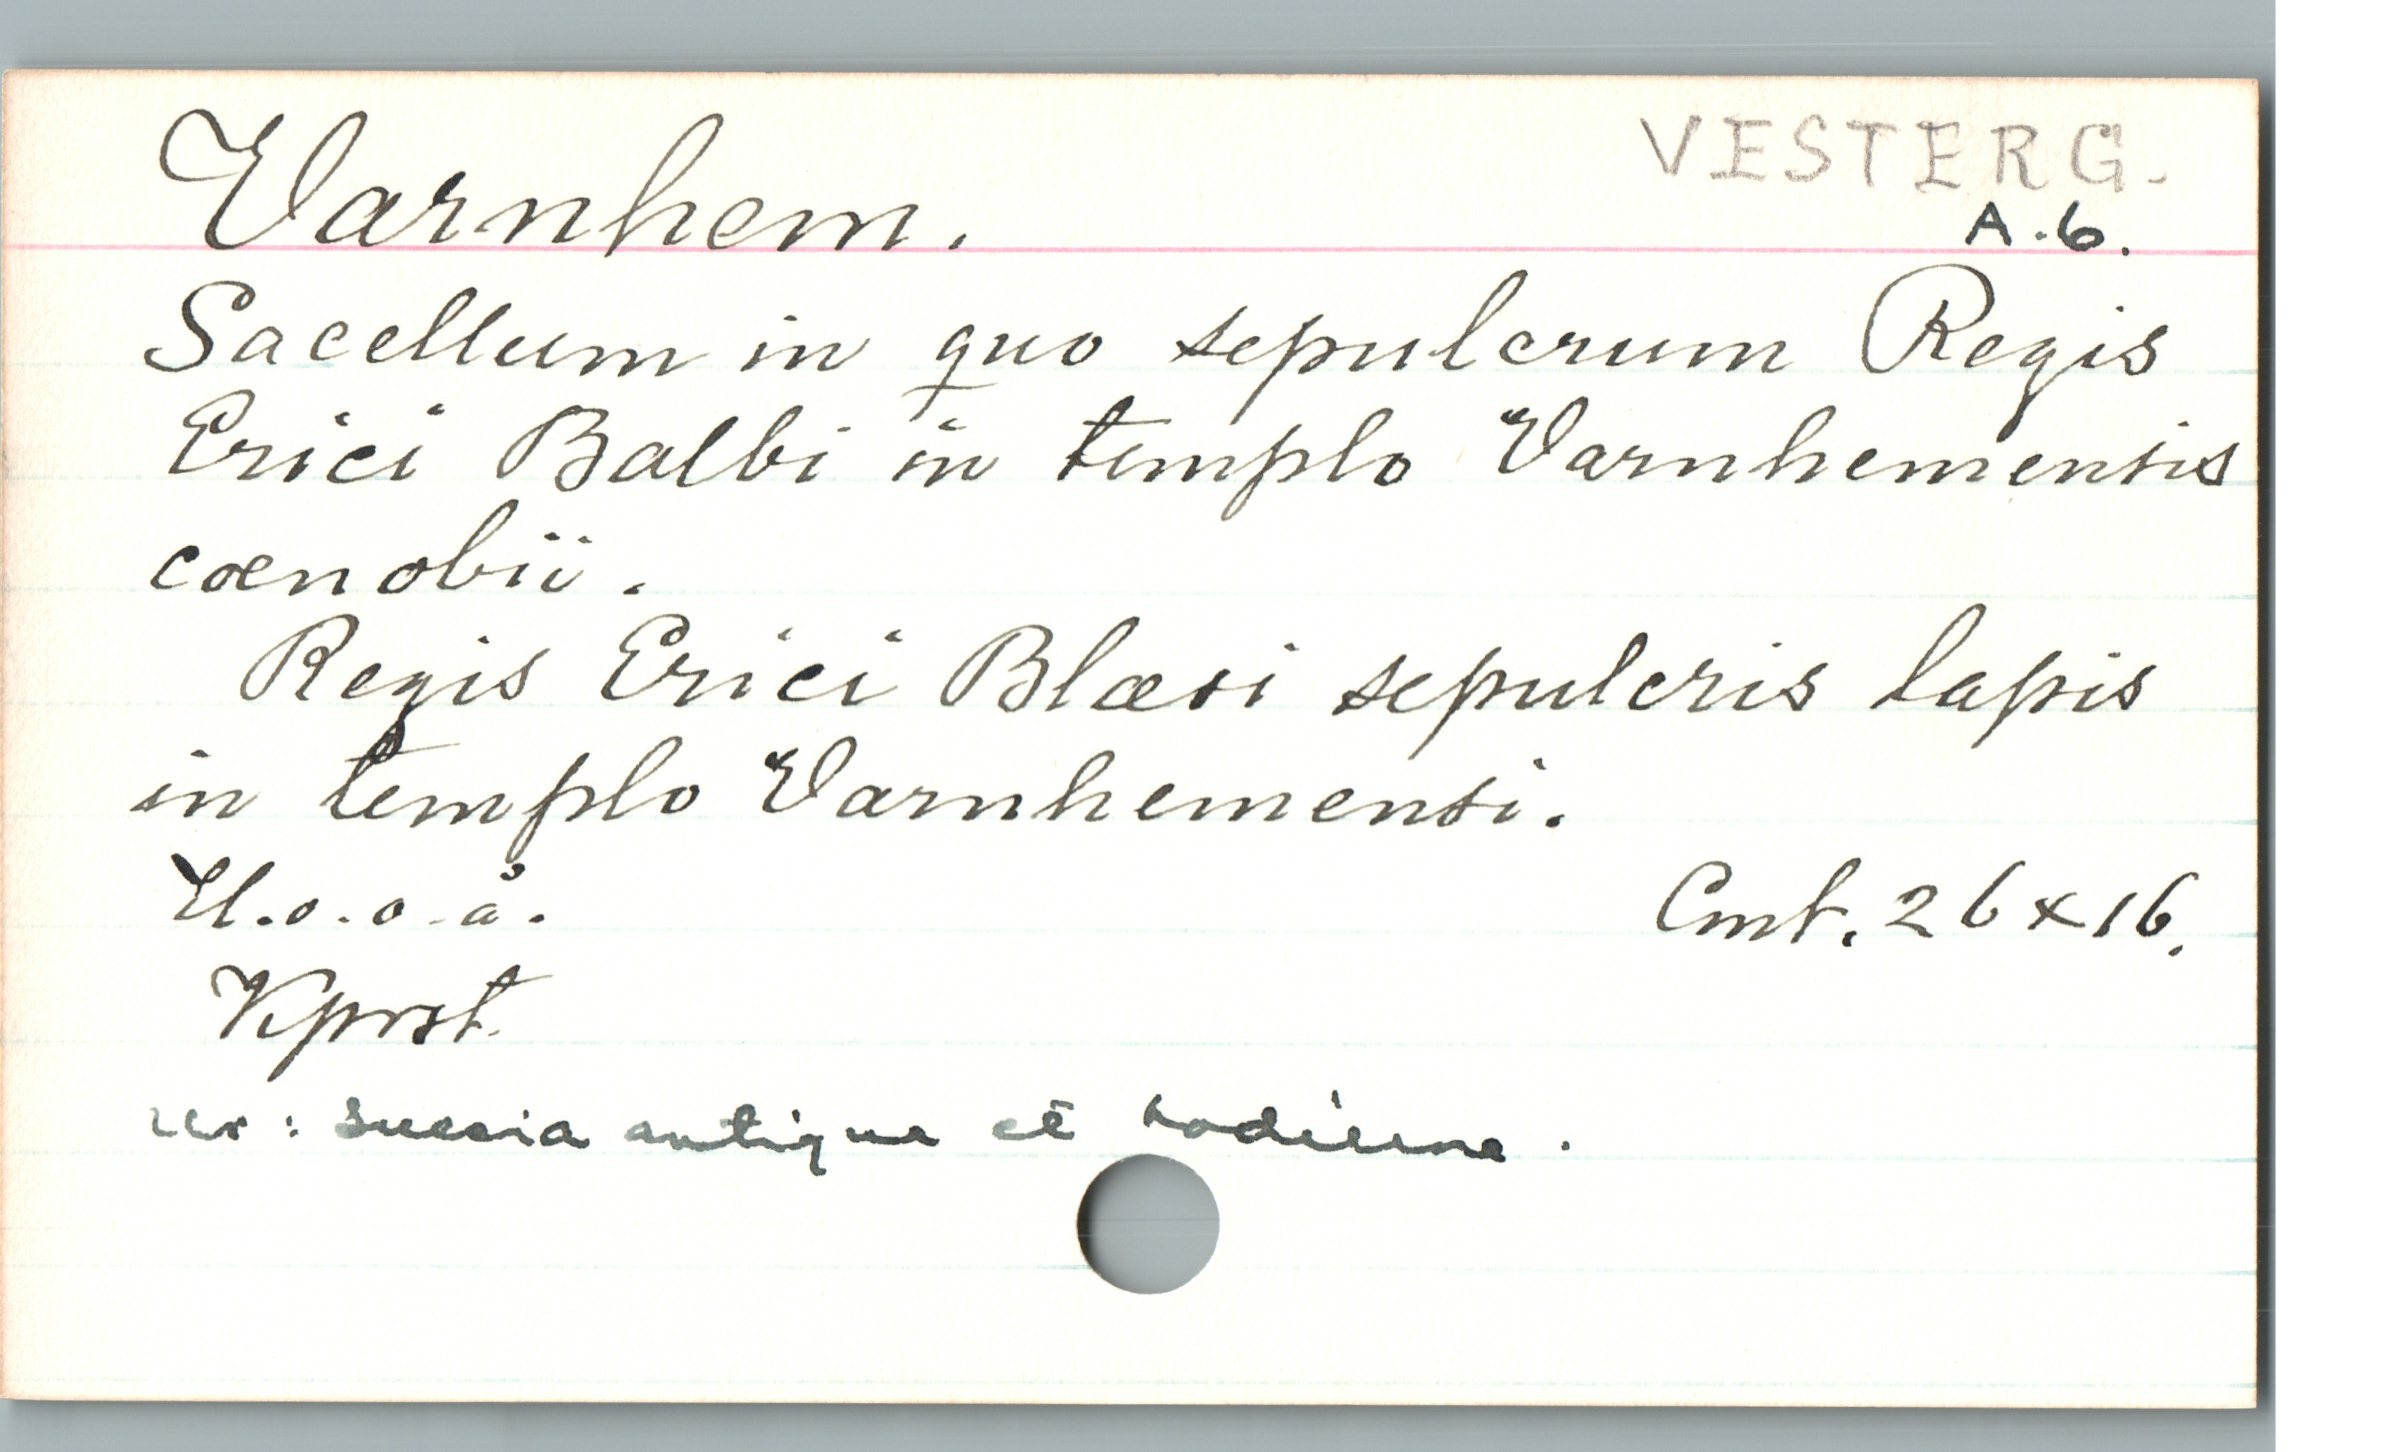 Varnhem.
VESTERG.
A.6.
Sacellum in quo sepulcrum Regis
Erici Balbi in templo Varnhemensis
cœnobii.
Regis Erici Blæsi sepulcris lapis
in templo Varnhemensi.
U.o.o.å.
Cmt. 26x16.
Kprst.
ur: Suecia antiqua et hodierna.